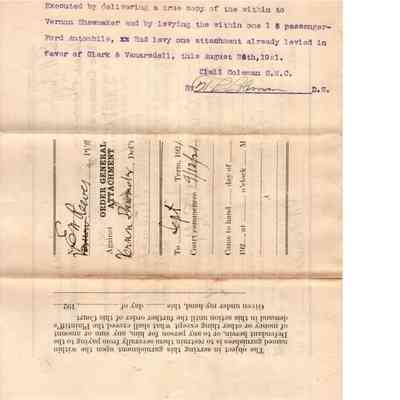 Executed by delivering a true copy of the within to
Vernon Shewmaker and by levying the within one 1 5 passenger-
Ford Automobile, xx Had levy one attachment already levied in
favor of Clark & Vanarsdell, this August 26th, 1921.
Clell Coleman S.M.C.
By D.S.
Plff
ORDER GENERAL
ATTACHMENT
Against
Vernon Shewmaker Def't
To Sept Term, 1921
Court commences 9/12/21
Came to hand day of
192 , at o'clock M
The object in serving this garnishment upon the within
named garnishees is to restrain them severally from paying to the
Defendant or to any person for him, any sum or amount
of money or other thing except what shall exceed the Plaintiff's
demand in this action until the further order of this Court
Given under my hand, this day of , 192